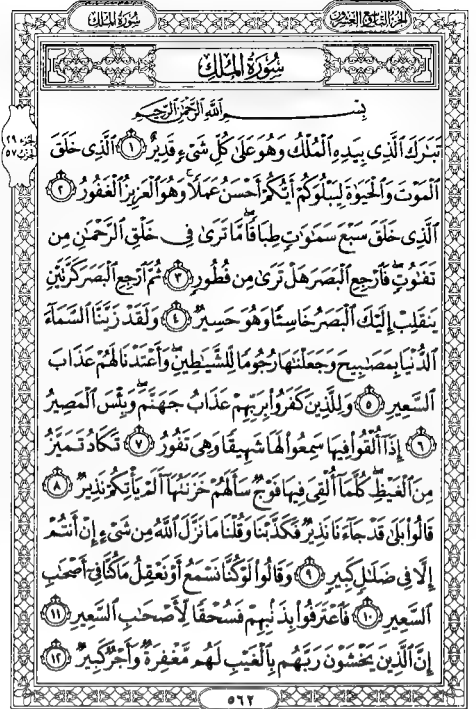 سُورَةُ المُلْكِ
الجزء التاسع والعشرون
سُورَةُ المُلْكِ
بِسْمِ اللَّهِ الرَّحْمَٰنِ الرَّحِيمِ
الجزء ٢٩
الحزب ٥٧
تَبَٰرَكَ ٱلَّذِى بِيَدِهِ ٱلْمُلْكُ وَهُوَ عَلَىٰ كُلِّ شَىْءٍ قَدِيرٌ ١ ٱلَّذِى خَلَقَ
ٱلْمَوْتَ وَٱلْحَيَوٰةَ لِيَبْلُوَكُمْ أَيُّكُمْ أَحْسَنُ عَمَلًا ۚ وَهُوَ ٱلْعَزِيزُ ٱلْغَفُورُ ٢
ٱلَّذِى خَلَقَ سَبْعَ سَمَٰوَٰتٍ طِبَاقًا ۖ مَّا تَرَىٰ فِى خَلْقِ ٱلرَّحْمَٰنِ مِن
تَفَٰوُتٍ ۖ فَٱرْجِعِ ٱلْبَصَرَ هَلْ تَرَىٰ مِن فُطُورٍ ٣ ثُمَّ ٱرْجِعِ ٱلْبَصَرَ كَرَّتَيْنِ
يَنقَلِبْ إِلَيْكَ ٱلْبَصَرُ خَاسِئًا وَهُوَ حَسِيرٌ ٤ وَلَقَدْ زَيَّنَّا ٱلسَّمَآءَ
ٱلدُّنْيَا بِمَصَٰبِيحَ وَجَعَلْنَٰهَا رُجُومًا لِّلشَّيَٰطِينِ ۖ وَأَعْتَدْنَا لَهُمْ عَذَابَ
ٱلسَّعِيرِ ٥ وَلِلَّذِينَ كَفَرُوا۟ بِرَبِّهِمْ عَذَابُ جَهَنَّمَ ۖ وَبِئْسَ ٱلْمَصِيرُ
٦ إِذَآ أُلْقُوا۟ فِيهَا سَمِعُوا۟ لَهَا شَهِيقًا وَهِىَ تَفُورُ ٧ تَكَادُ تَمَيَّزُ
مِنَ ٱلْغَيْظِ ۖ كُلَّمَآ أُلْقِىَ فِيهَا فَوْجٌ سَأَلَهُمْ خَزَنَتُهَآ أَلَمْ يَأْتِكُمْ نَذِيرٌ ٨
قَالُوا۟ بَلَىٰ قَدْ جَآءَنَا نَذِيرٌ فَكَذَّبْنَا وَقُلْنَا مَا نَزَّلَ ٱللَّهُ مِن شَىْءٍ إِنْ أَنتُمْ
إِلَّا فِى ضَلَٰلٍ كَبِيرٍ ٩ وَقَالُوا۟ لَوْ كُنَّا نَسْمَعُ أَوْ نَعْقِلُ مَا كُنَّا فِىٓ أَصْحَٰبِ
ٱلسَّعِيرِ ١٠ فَٱعْتَرَفُوا۟ بِذَنۢبِهِمْ فَسُحْقًا لِّأَصْحَٰبِ ٱلسَّعِيرِ ١١
إِنَّ ٱلَّذِينَ يَخْشَوْنَ رَبَّهُم بِٱلْغَيْبِ لَهُم مَّغْفِرَةٌ وَأَجْرٌ كَبِيرٌ ١٢
٥٦٢